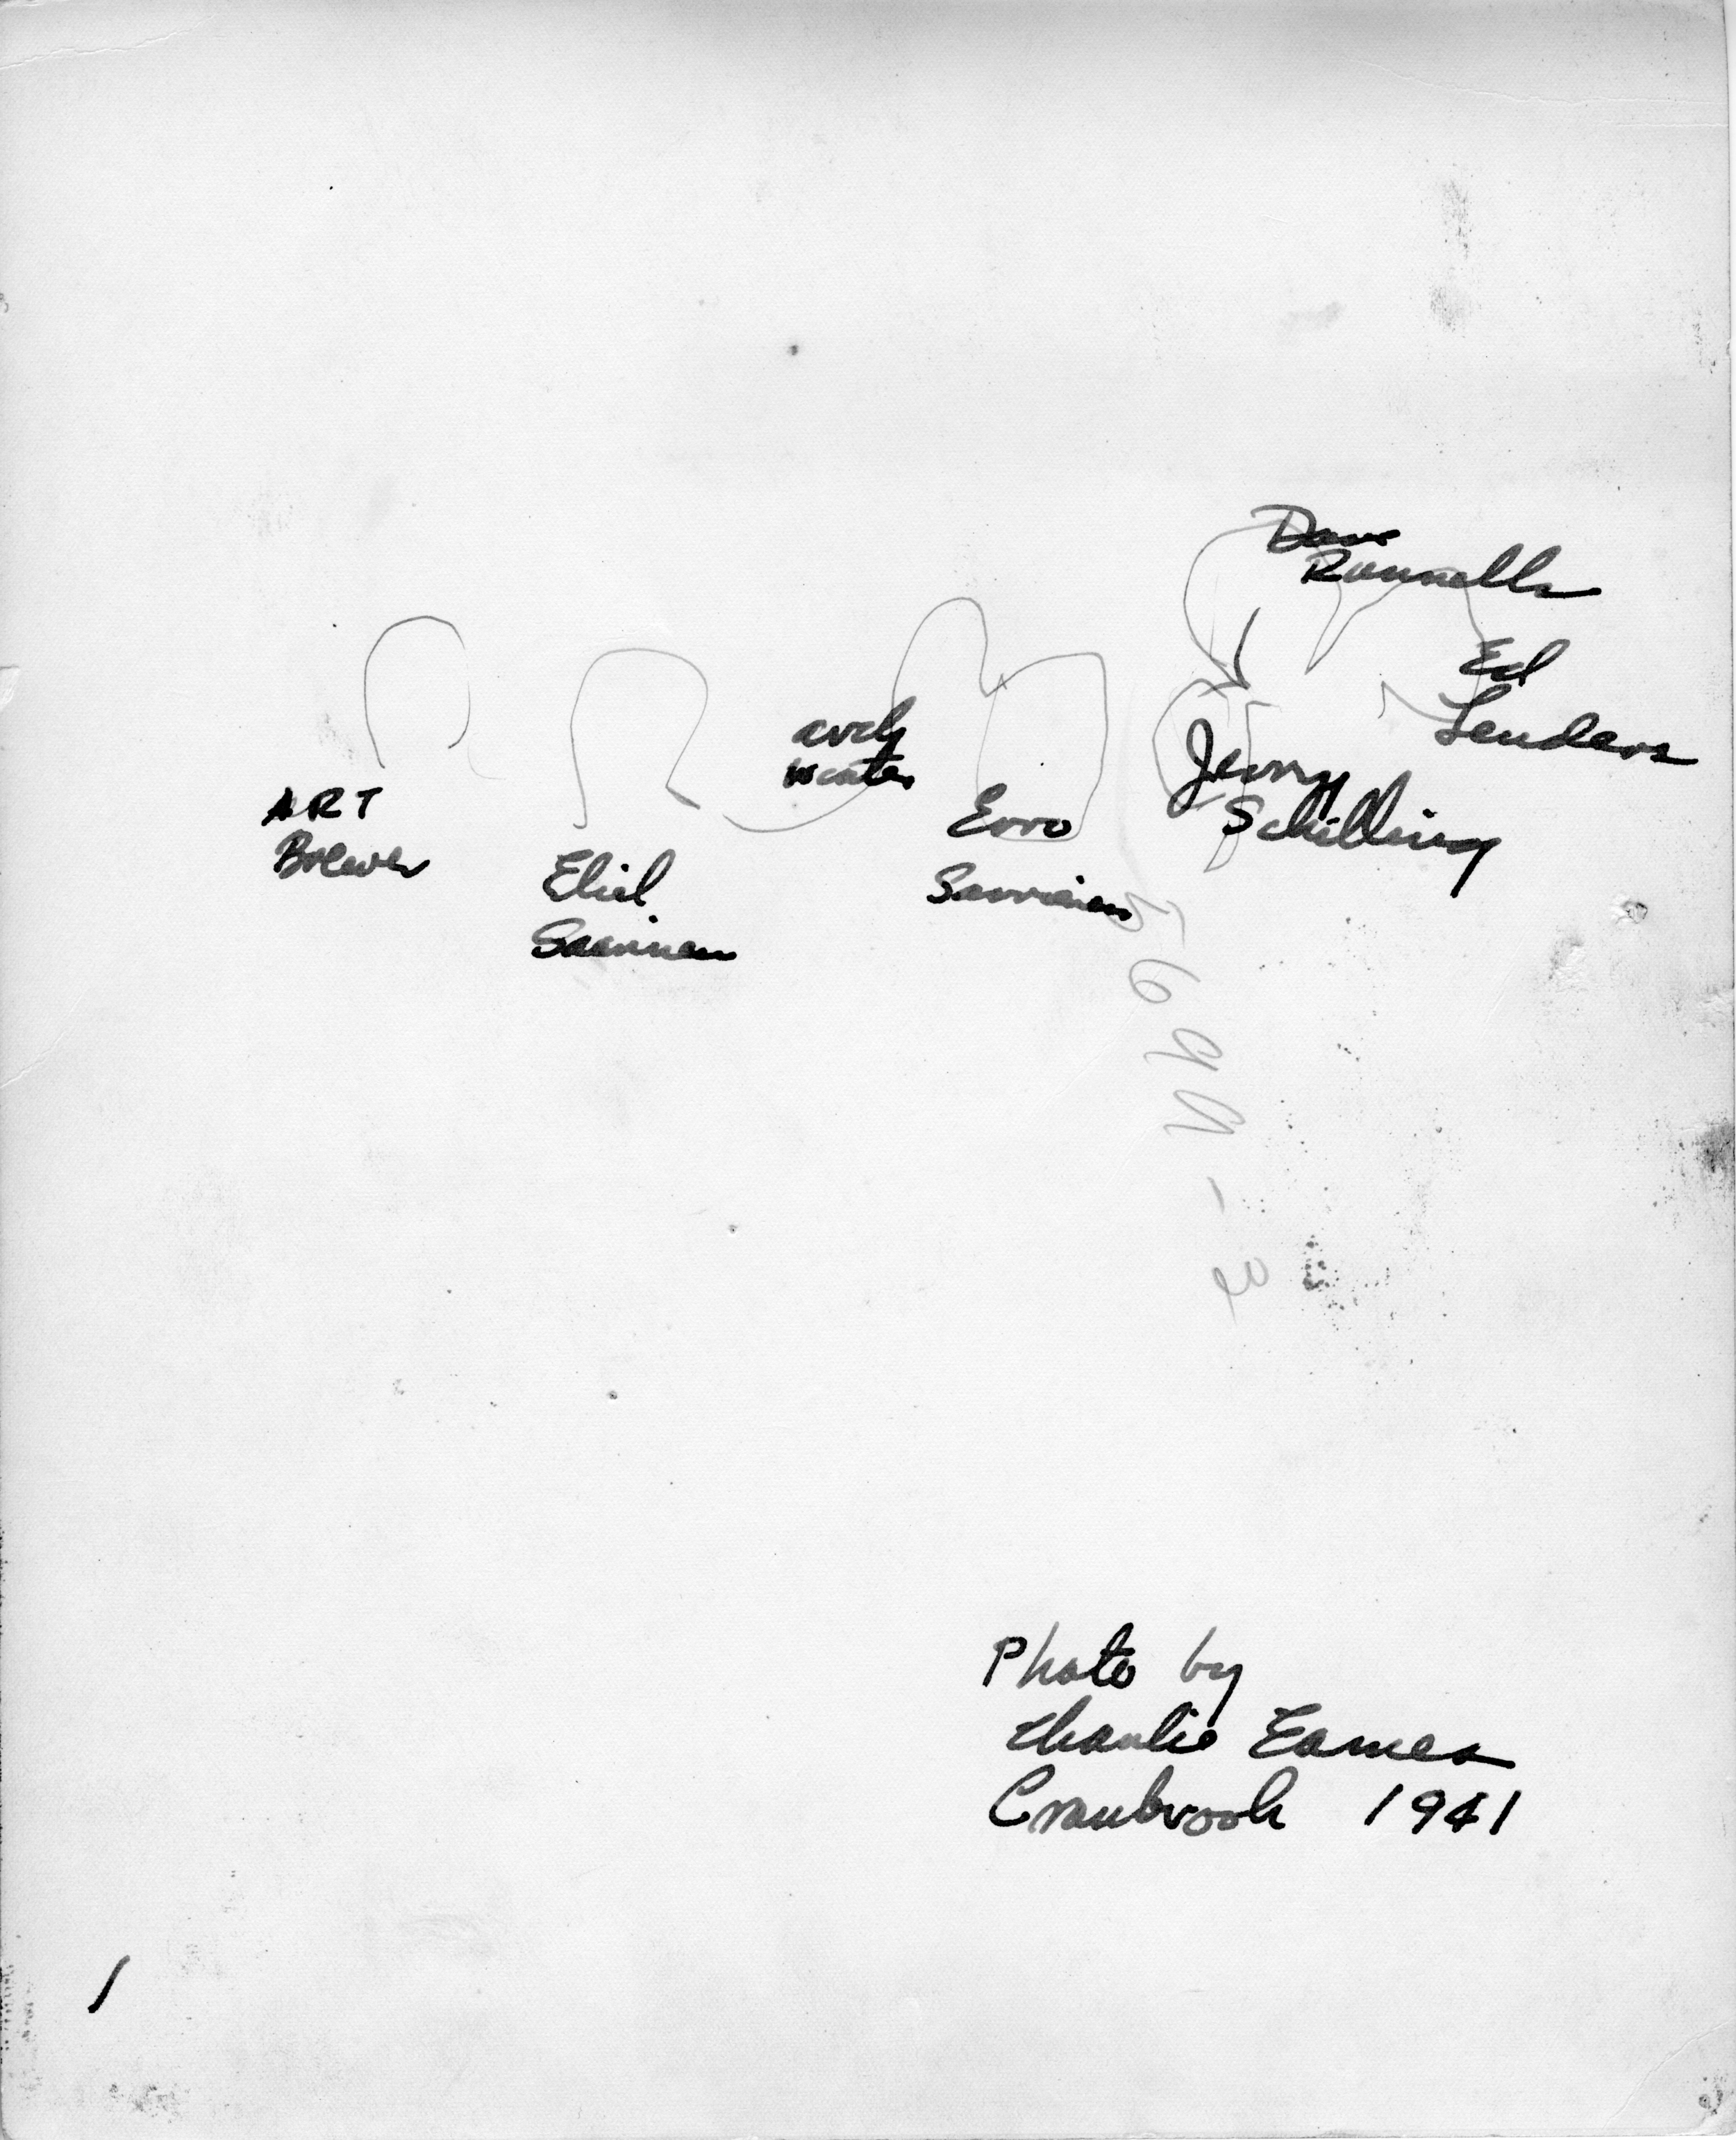 Dave
Runnells
Ed
Lenders
arch
winter
Jerry
Schilling
ART
Brewer
Eero
Saarinen
Eliel
Saarinen
5699-2
Photo by
Charlie Eames
Cranbrook 1941
1